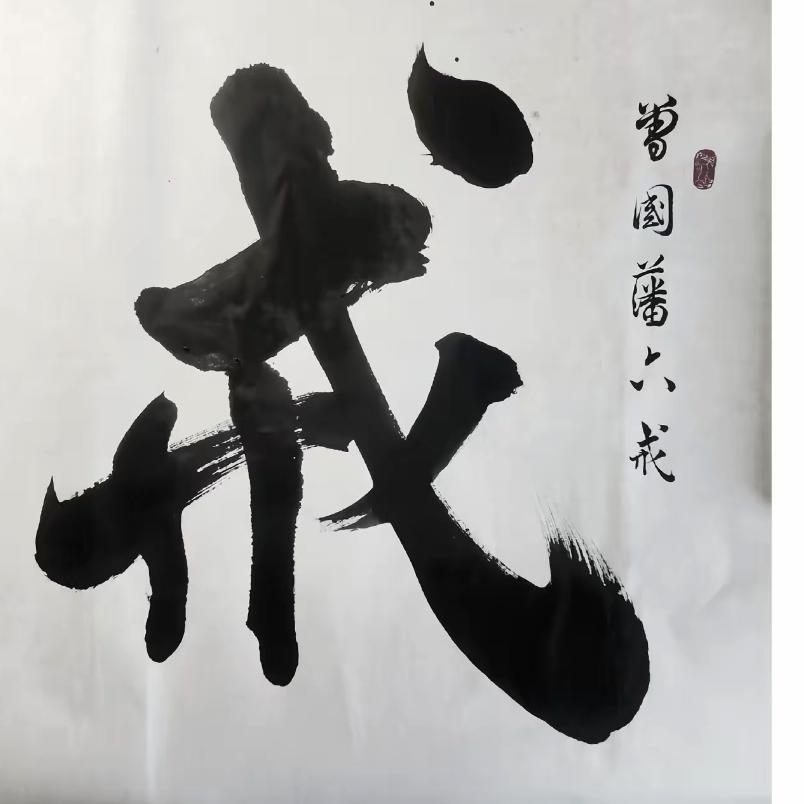 曾國藩六戒
戒